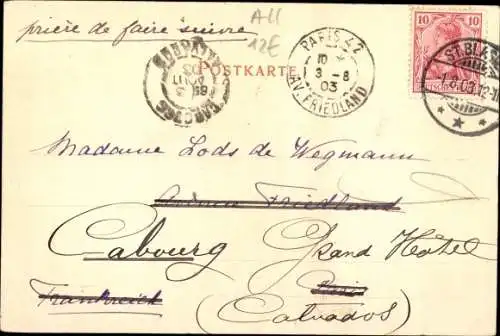 prière de faire suivre
All
12E
POSTKARTE
PARIS 42
10 *
3 - 8
03
AV. FRIEDLAND
10
10
ST. BLA
1.8.03.
Madame Lods de Wegmann
Avenue Friedland
Cabourg Grand Hôtel
Paris
Frankreich
(Calvados)